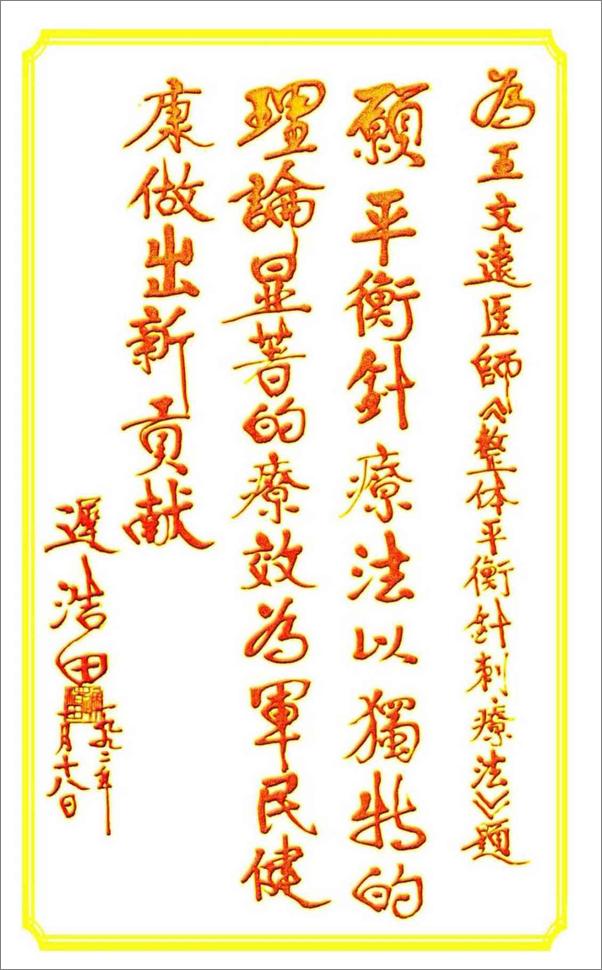 為王文遠医師《整体平衡針刺療法》題
願平衡針療法以獨特的
理論显著的療效為軍民健
康做出新貢献
遲浩田
一九九二年
十月十八日